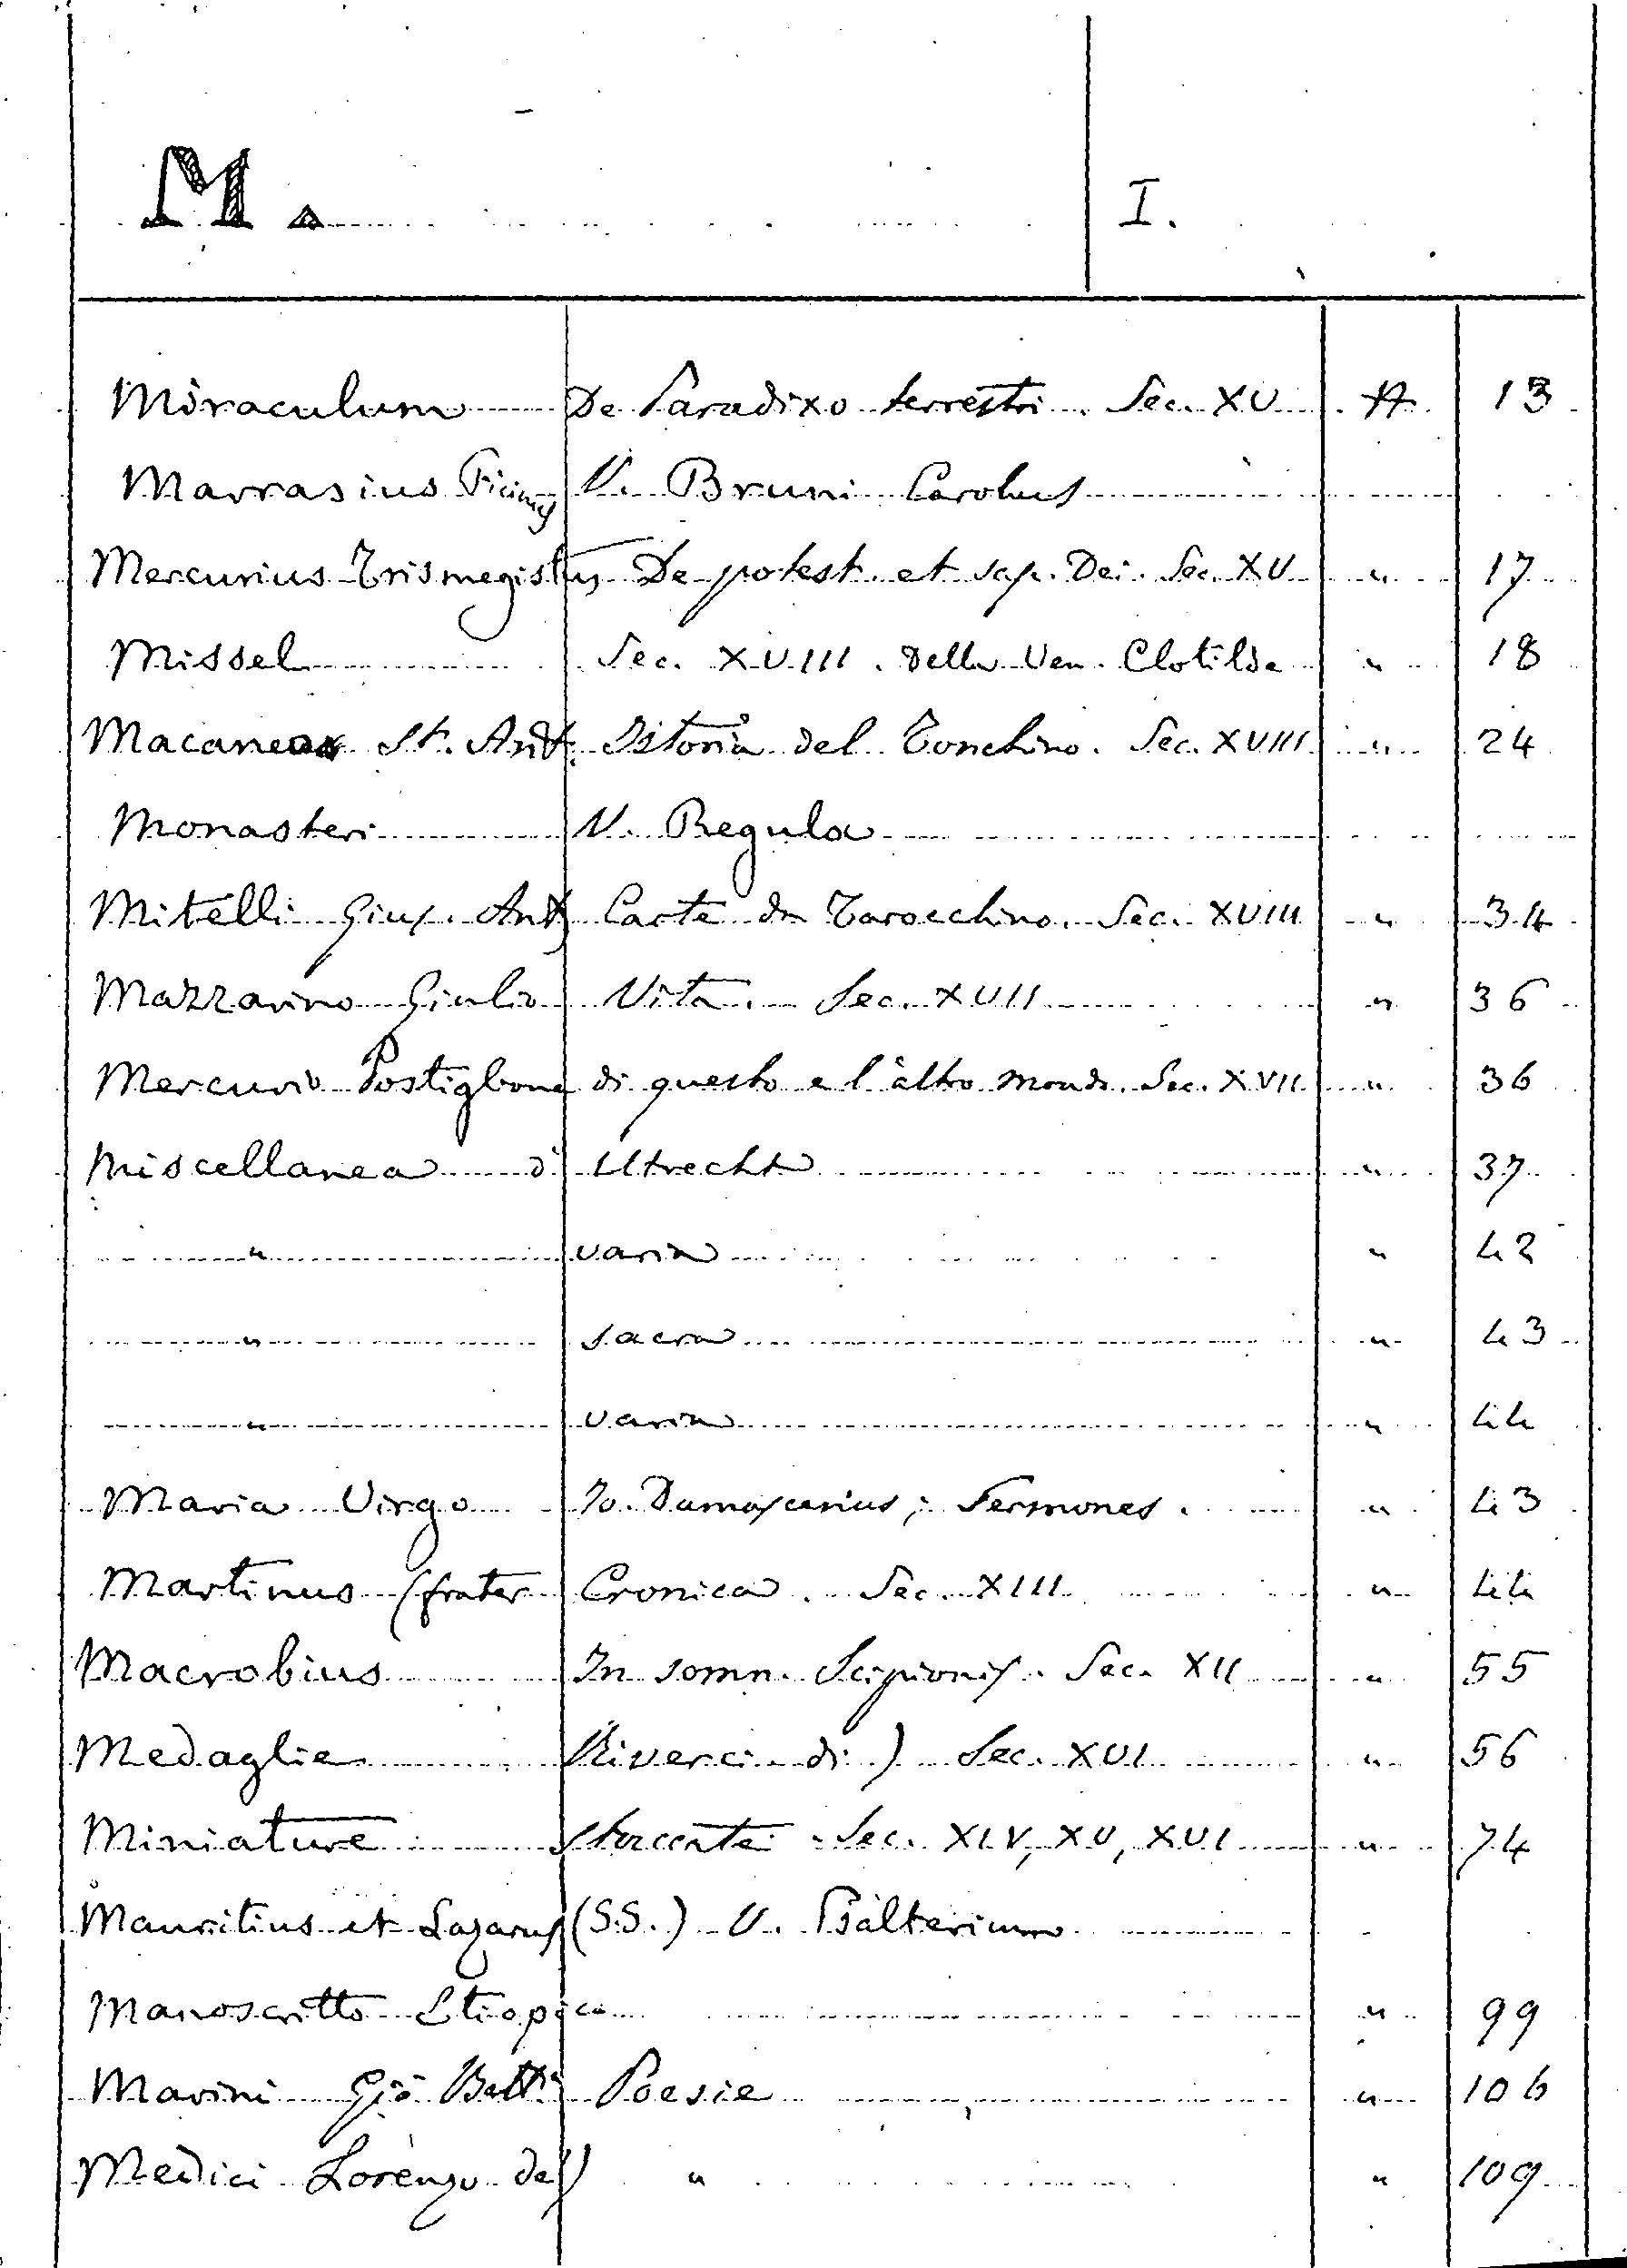 M. I.
Miraculum De Paradixo terrestri. Sec. XV A 13
Marrasius Ficinus V. Bruni Carolus
Mercurius Trismegistus De potest. et sap. Dei. Sec. XV " 17
Missel Sec. XVIII. Della Ven. Clotilde " 18
St. Ant. Istoria del Tonchino. Sec. XVIII " 24
Monasteri V. Regula
Mitelli Gius. Ant. Carte da Tarocchino. Sec. XVIII " 34
Mazzarino Giulio Vita. Sec. XVII " 36
Mercurio Postiglione di questo e l'altro mondo. Sec. XVII " 36
Miscellanea d' Utrecht " 37
" varia " 42
" sacra " 43
" varia " 44
Maria Virgo Jo. Damascenius; Sermones. " 43
Martinus (frater Cronica. Sec. XIII " 44
Macrobius In somn. Scipionis. Sec. XII " 55
Medaglie Riverci di) Sec. XVI " 56
Miniature staccate. Sec. XIV, XV, XVI " 74
Mauritius et Lazarus (S.S.) V. Psalterium
Manoscritto Etiopico " 99
Marini Gio Batt. Poesie " 106
Medici Lorenzo de') " " 109